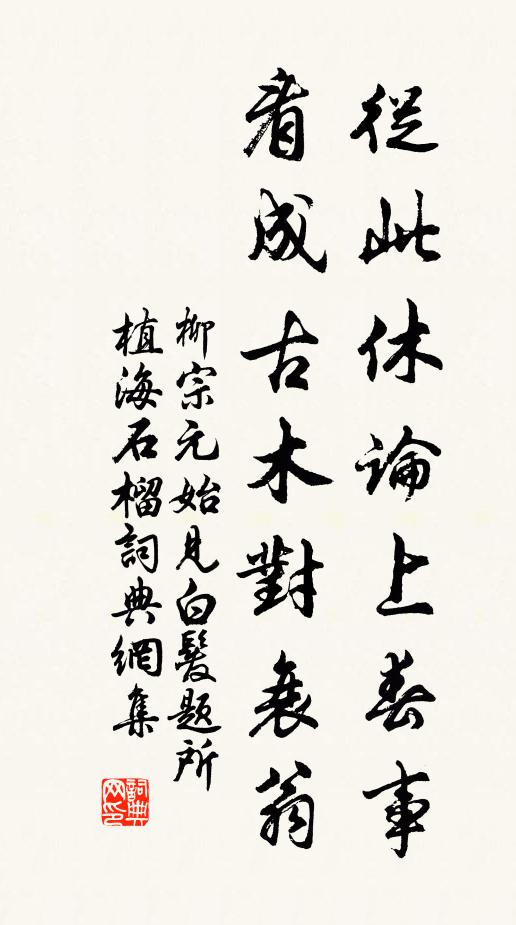 從此休論上春事
看成古木對衰翁
柳宗元始見白髮題所
植海石榴詞典網集
詞典
网印